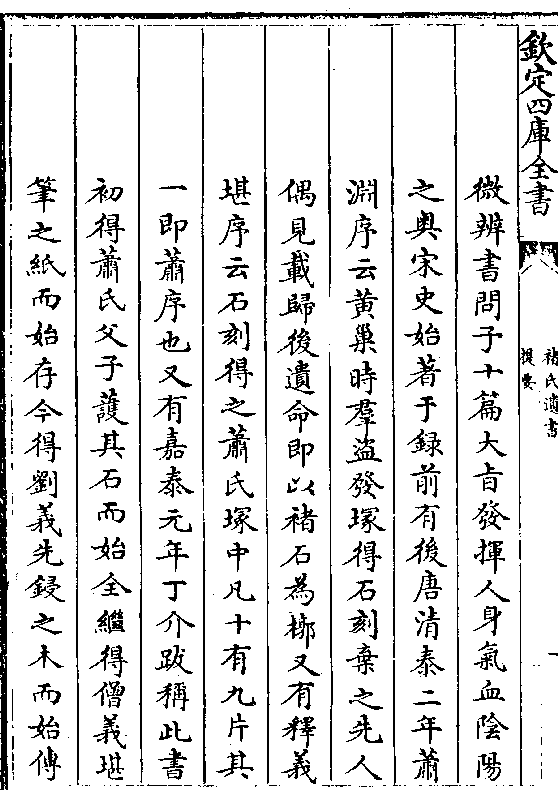 欽定四庫全書
褚氏遺書
提要
一
微辨書問子十篇大㫖發揮人身氣血陰陽
之奥宋史始著于録前有後唐清泰二年蕭
淵序云黄巢時羣盜發塚得石刻棄之先人
偶見載歸後遺命即以褚石為槨又有釋義
堪序云石刻得之蕭氏塚中凡十有九片其
一即蕭序也又有嘉泰元年丁介跋稱此書
初得蕭氏父子護其石而始全繼得僧義堪
筆之紙而始存今得劉義先鋟之木而始傳